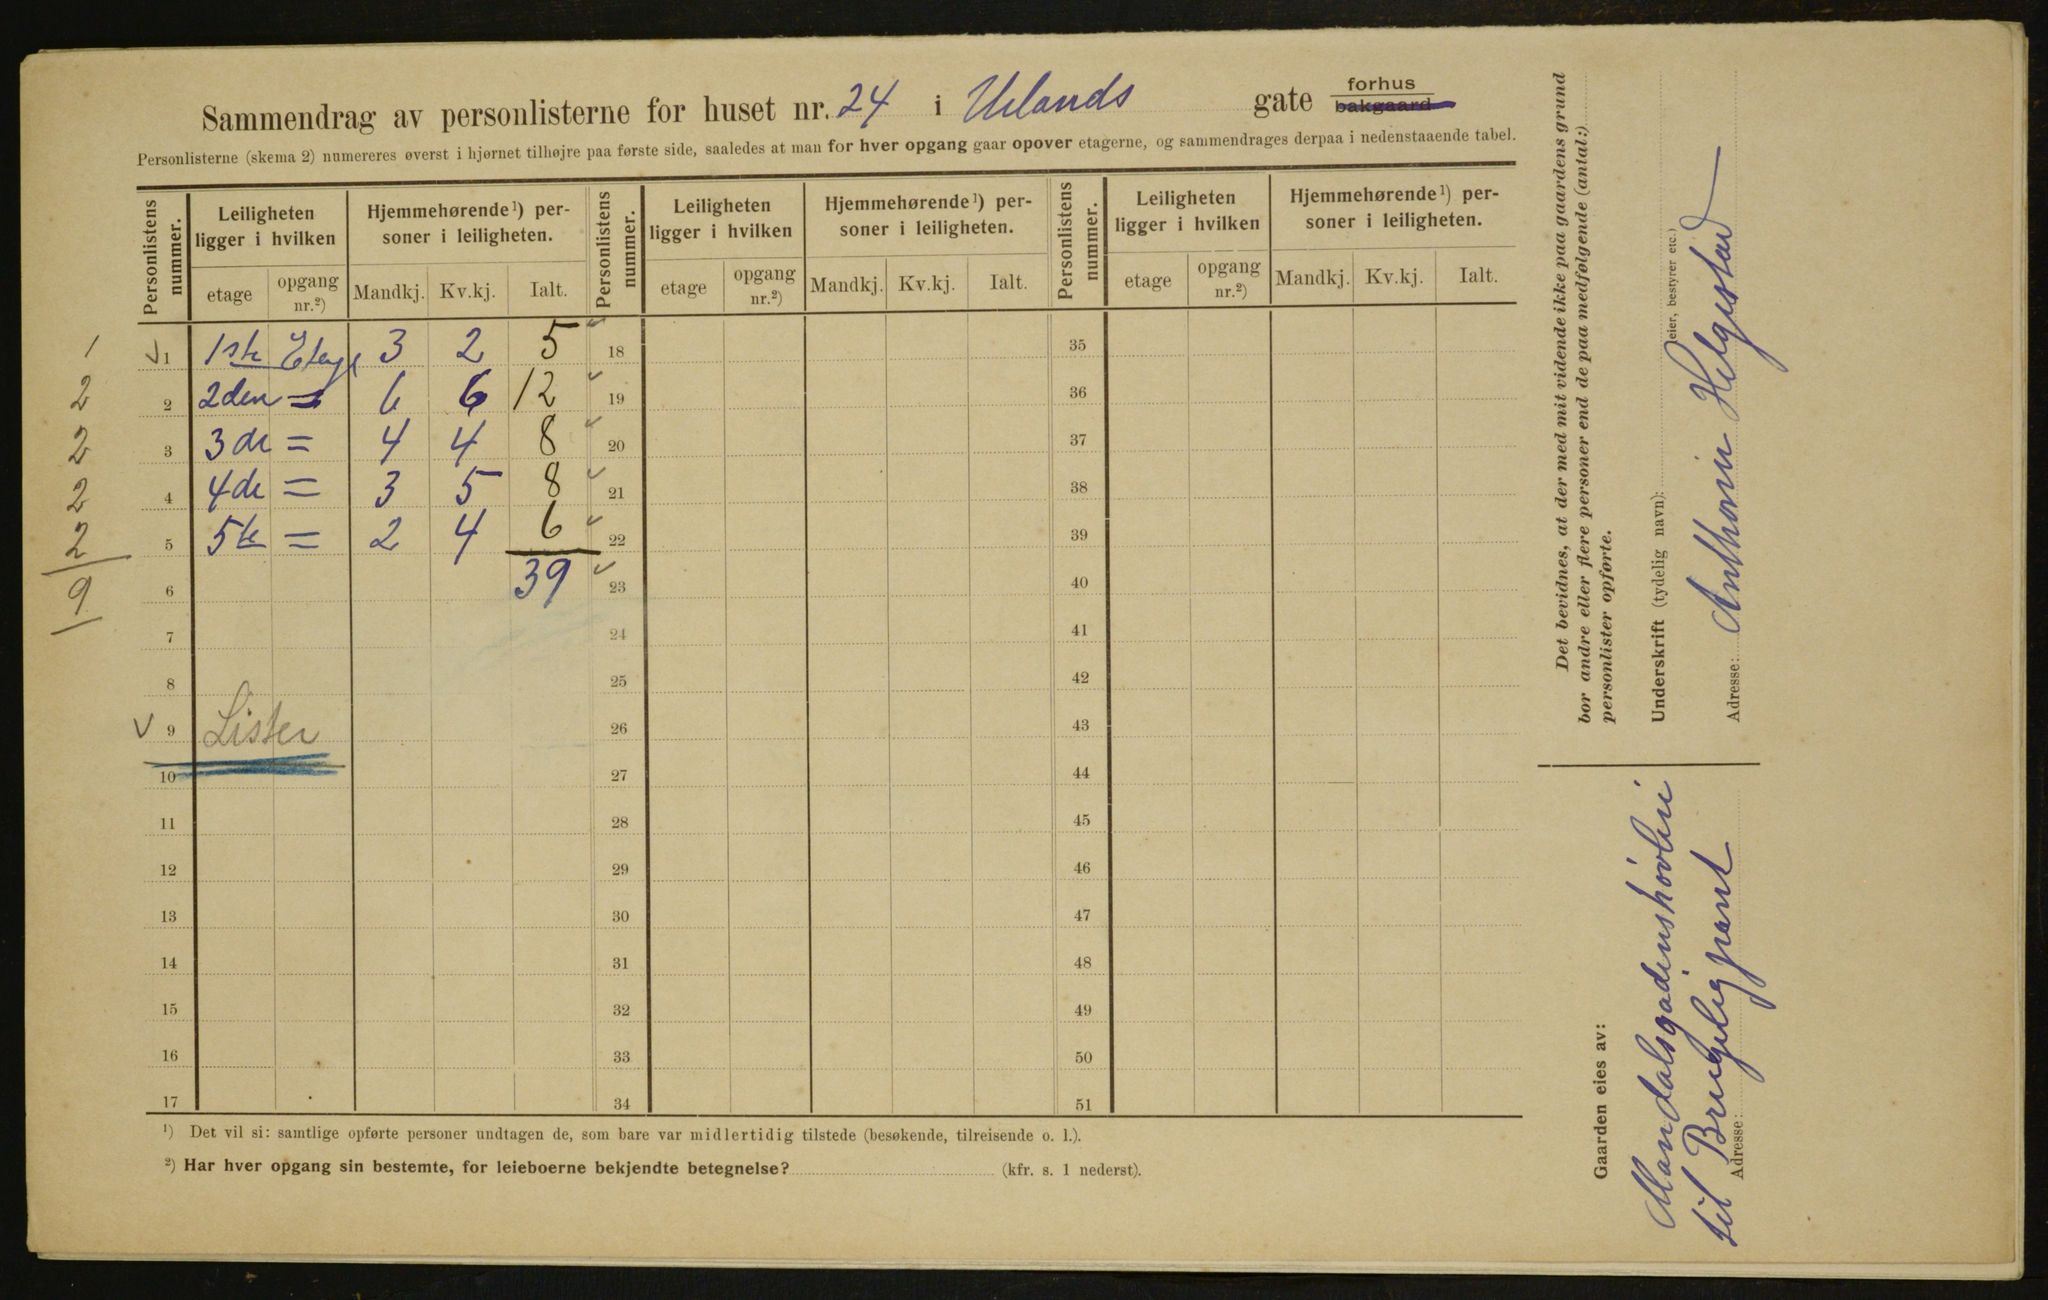 Sammendrag av personlisterne for huset nr. 24 i Uelands gate forhus bakgaard
Personlisterne (skema 2) numereres øverst i hjørnet tilhøjre paa første side, saaledes at man for hver opgang gaar opover etagerne, og sammendrages derpaa i nedenstaaende tabel.
Personlistens nummer. Leiligheten ligger i hvilken Hjemmehørende¹) personer i leiligheten. Personlistens nummer. Leiligheten ligger i hvilken Hjemmehørende¹) personer i leiligheten. Personlistens nummer. Leiligheten ligger i hvilken Hjemmehørende¹) personer i leiligheten.
etage opgang nr.²) Mandkj. Kv.kj. Ialt. etage opgang nr.²) Mandkj. Kv.kj. Ialt. etage opgang nr.²) Mandkj. Kv.kj. Ialt.
1 1 1ste Etage 3 2 5 18 35
2 2 2den = 6 6 12 19 36
2 3 3de = 4 4 8 20 37
2 4 4de = 3 5 8 21 38
2 5 5te = 2 4 6 22 39
9 6 39 23 40
7 24 41
8 25 42
9 Lister 26 43
10 27 44
11 28 45
12 29 46
13 30 47
14 31 48
15 32 49
16 33 50
17 34 51
¹) Det vil si: samtlige opførte personer undtagen de, som bare var midlertidig tilstede (besøkende, tilreisende o. l.).
²) Har hver opgang sin bestemte, for leieboerne bekjendte betegnelse? (kfr. s. 1 nederst).
Det bevidnes, at der med mit vidende ikke paa gaardens grund
bor andre eller flere personer end de paa medfølgende (antal:)
personlister opførte.
Underskrift (tydelig navn): (eier, bestyrer etc.)
Anthonie Helgestad
Adresse:
Gaarden eies av:
Mandalsgadenshøvleri
til Brugeligpant
Adresse: